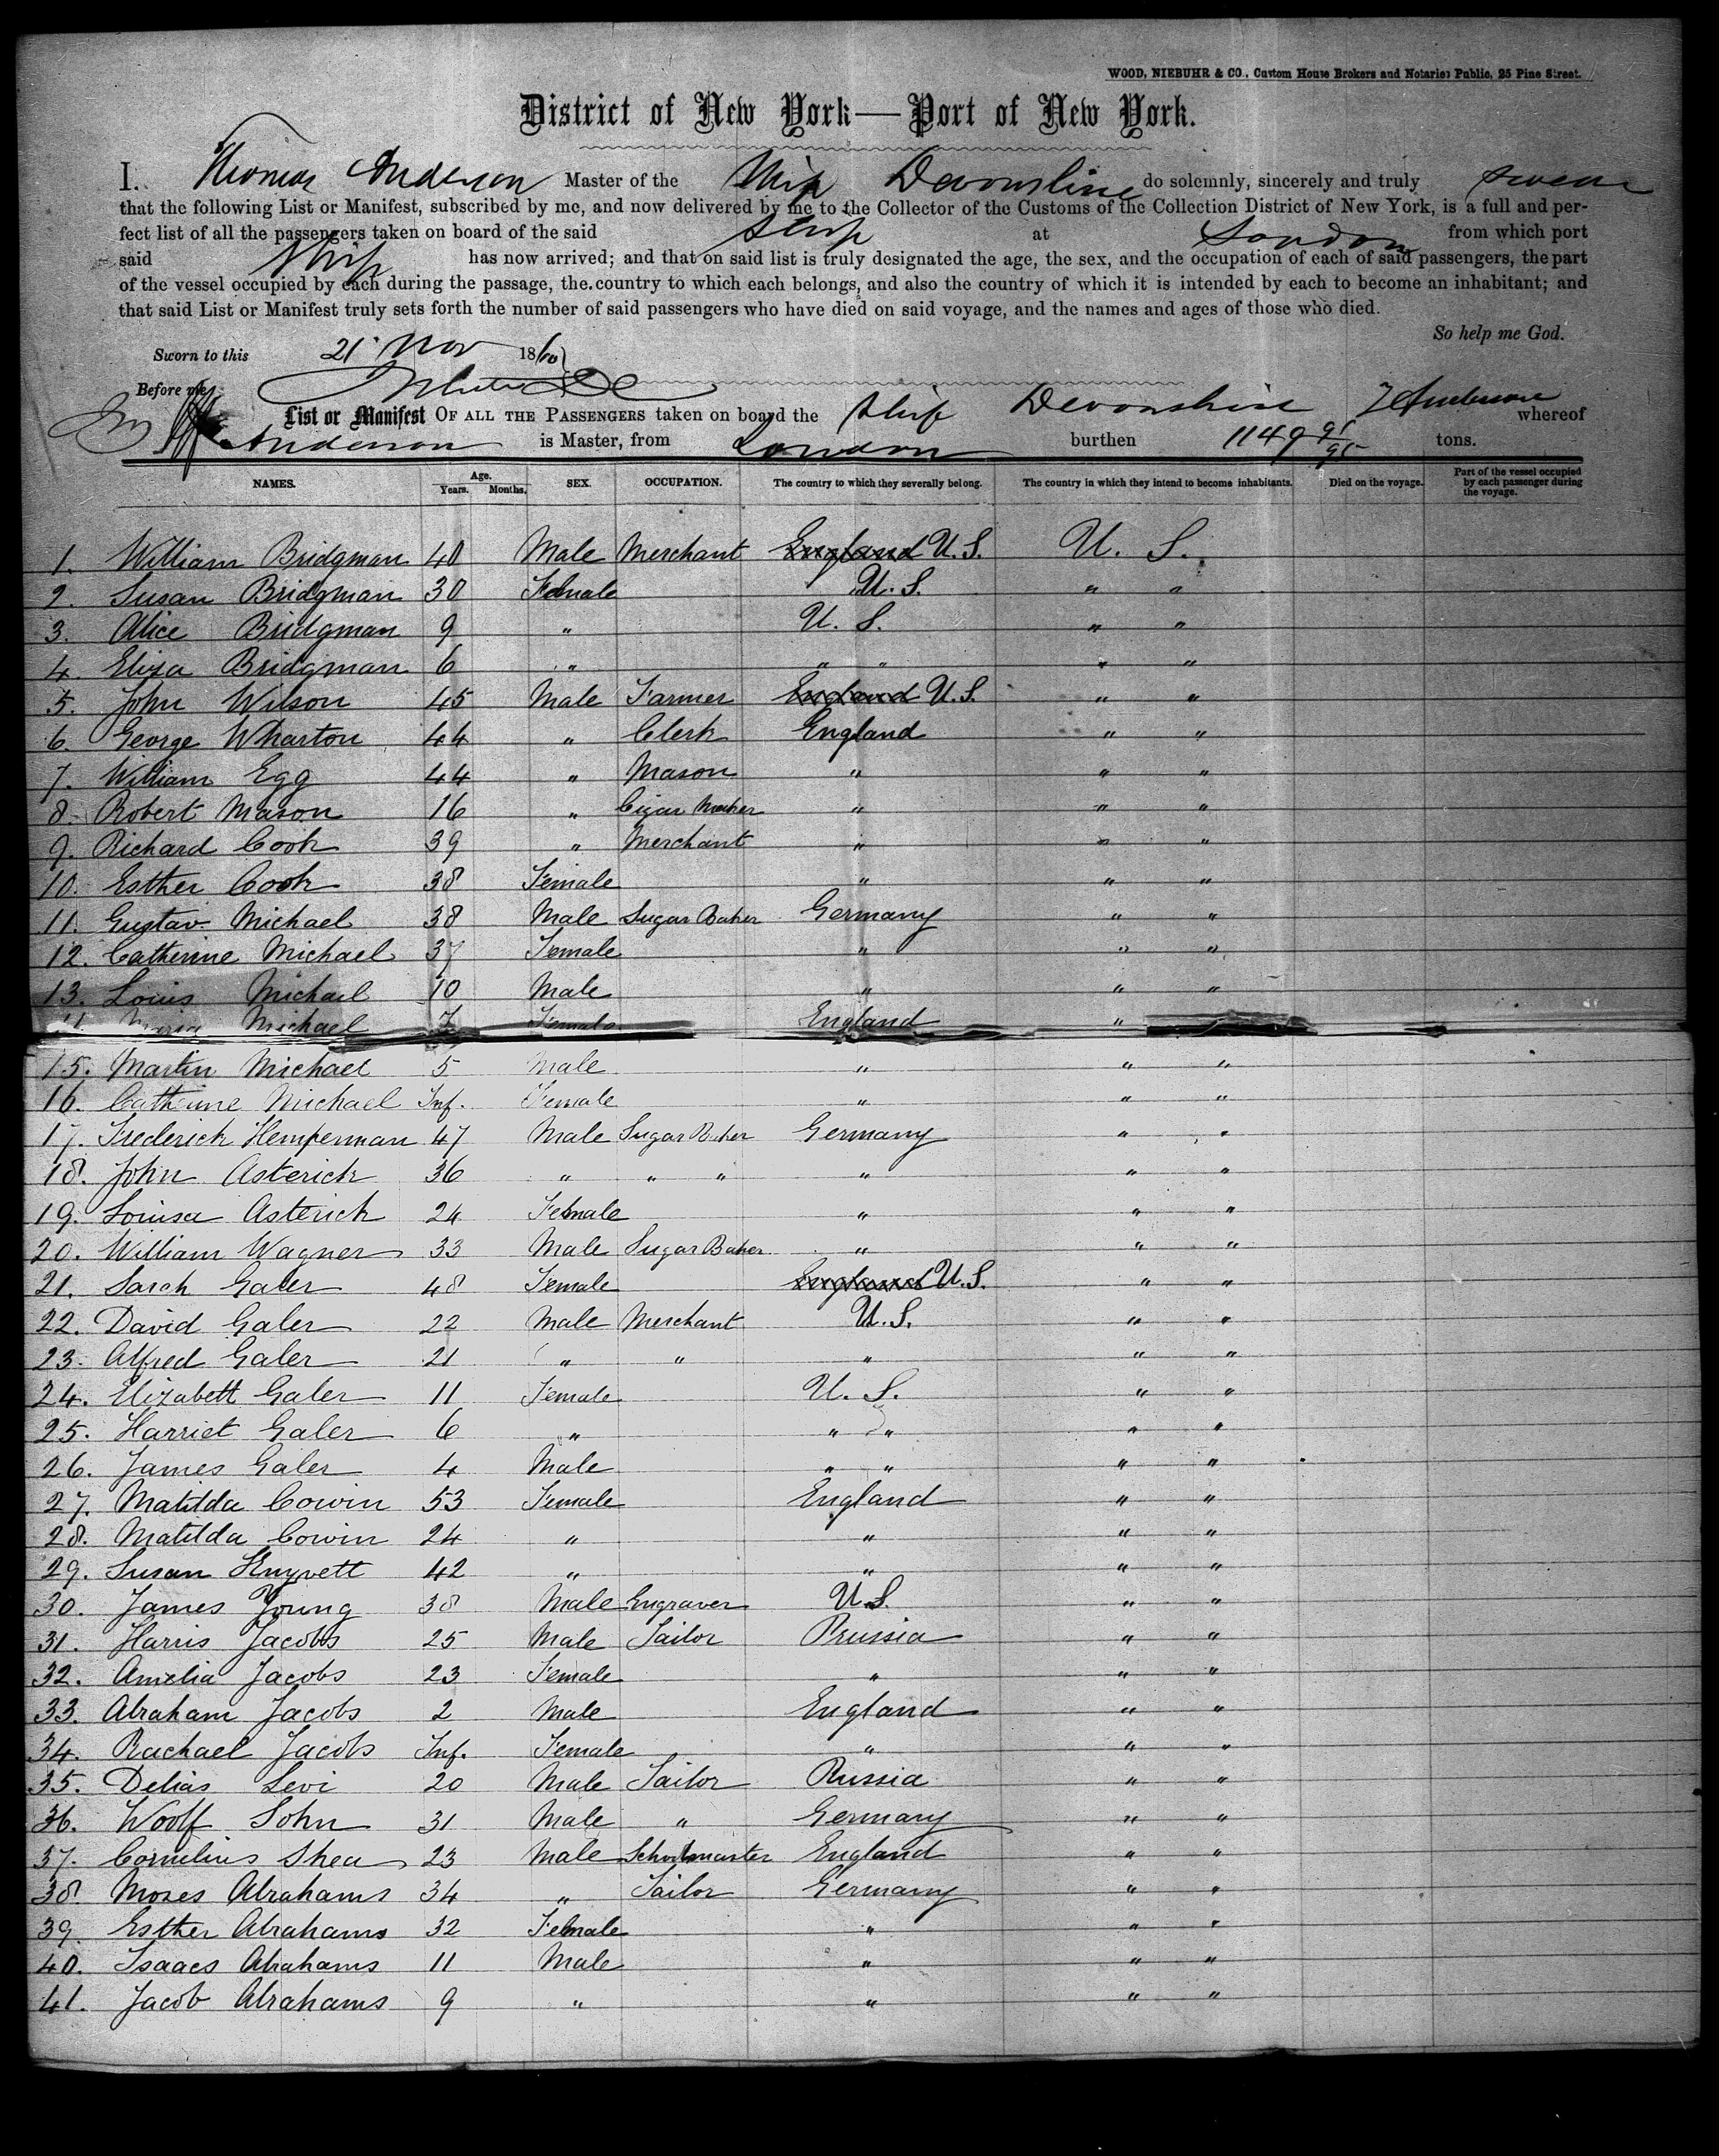 WOOD, NIEBUHR & CO., Custom House Brokers and Notaries Public, 25 Pine Street.
District of New York—Port of New York.
I. Thomas Anderson Master of the Ship Devonshire do solemnly, sincerely and truly swear
that the following List or Manifest, subscribed by me, and now delivered by me to the Collector of the Customs of the Collection District of New York, is a full and per-
fect list of all the passengers taken on board of the said Ship at London from which port
said Ship has now arrived; and that on said list is truly designated the age, the sex, and the occupation of each of said passengers, the part
of the vessel occupied by each during the passage, the country to which each belongs, and also the country of which it is intended by each to become an inhabitant; and
that said List or Manifest truly sets forth the number of said passengers who have died on said voyage, and the names and ages of those who died.
So help me God.
Sworn to this 21 Nov 1860
Before me
List or Manifest OF ALL THE PASSENGERS taken on board the Ship Devonshire T Anderson whereof
Anderson is Master, from London burthen 1149 91/95 tons.
NAMES. Age. Years. Months. SEX. OCCUPATION. The country to which they severally belong. The country in which they intend to become inhabitants. Died on the voyage. Part of the vessel occupied by each passenger during the voyage.
1. William Bridgman 40 Male Merchant England U.S. U. S.
2. Susan Bridgman 30 Female U.S. " "
3. Alice Bridgman 9 " U. S. " "
4. Eliza Bridgman 6 " " " " "
5. John Wilson 45 Male Farmer England U.S. " "
6. George Wharton 44 " Clerk England " "
7. William Egg 44 " Mason " " "
8. Robert Mason 16 " Cigar Maker " " "
9. Richard Cook 39 " Merchant " " "
10. Esther Cook 38 Female " " "
11. Gustav Michael 38 Male Sugar Baker Germany " "
12. Catherine Michael 37 Female " " "
13. Louis Michael 10 Male " " "
Maria Michael 7 Female England "
15. Martin Michael 5 Male " " "
16. Catherine Michael Inf. Female " " "
17. Frederick Hemperman 47 Male Sugar Baker Germany " "
18. John Asterick 36 " " " " " "
19. Louisa Asterick 24 Female " " "
20. William Wagner 33 Male Sugar Baker " " "
21. Sarah Galer 48 Female England U.S. " "
22. David Galer 22 Male Merchant U.S. " "
23. Alfred Galer 21 " " " " "
24. Elizabeth Galer 11 Female U. S. " "
25. Harriet Galer 6 " " " " "
26. James Galer 4 Male " " " "
27. Matilda Cowin 53 Female England " "
28. Matilda Cowin 24 " " " "
29. Susan Knyvett 42 " " " "
30. James Young 38 Male Engraver U.S. " "
31. Harris Jacobs 25 Male Tailor Prussia " "
32. Amelia Jacobs 23 Female " " "
33. Abraham Jacobs 2 Male England " "
34. Rachael Jacobs Inf. Female " " "
35. Delias Levi 20 Male Tailor Russia " "
36. Woolf Sohn 31 Male " Germany " "
37. Cornelius Shea 23 Male Schoolmaster England " "
38 Moses Abrahams 34 " Tailor Germany " "
39. Esther Abrahams 32 Female " " "
40. Isaacs Abrahams 11 Male " " "
41. Jacob Abrahams 9 " " " "